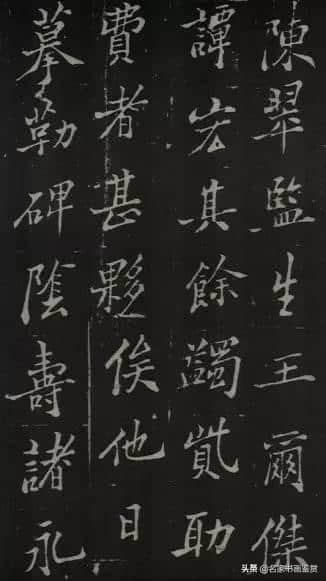 陳翠監生王爾傑
譚宏其餘蠲貲助
費者甚夥俟他日
摹勒碑陰壽諸永
头条 @名家书画鉴赏